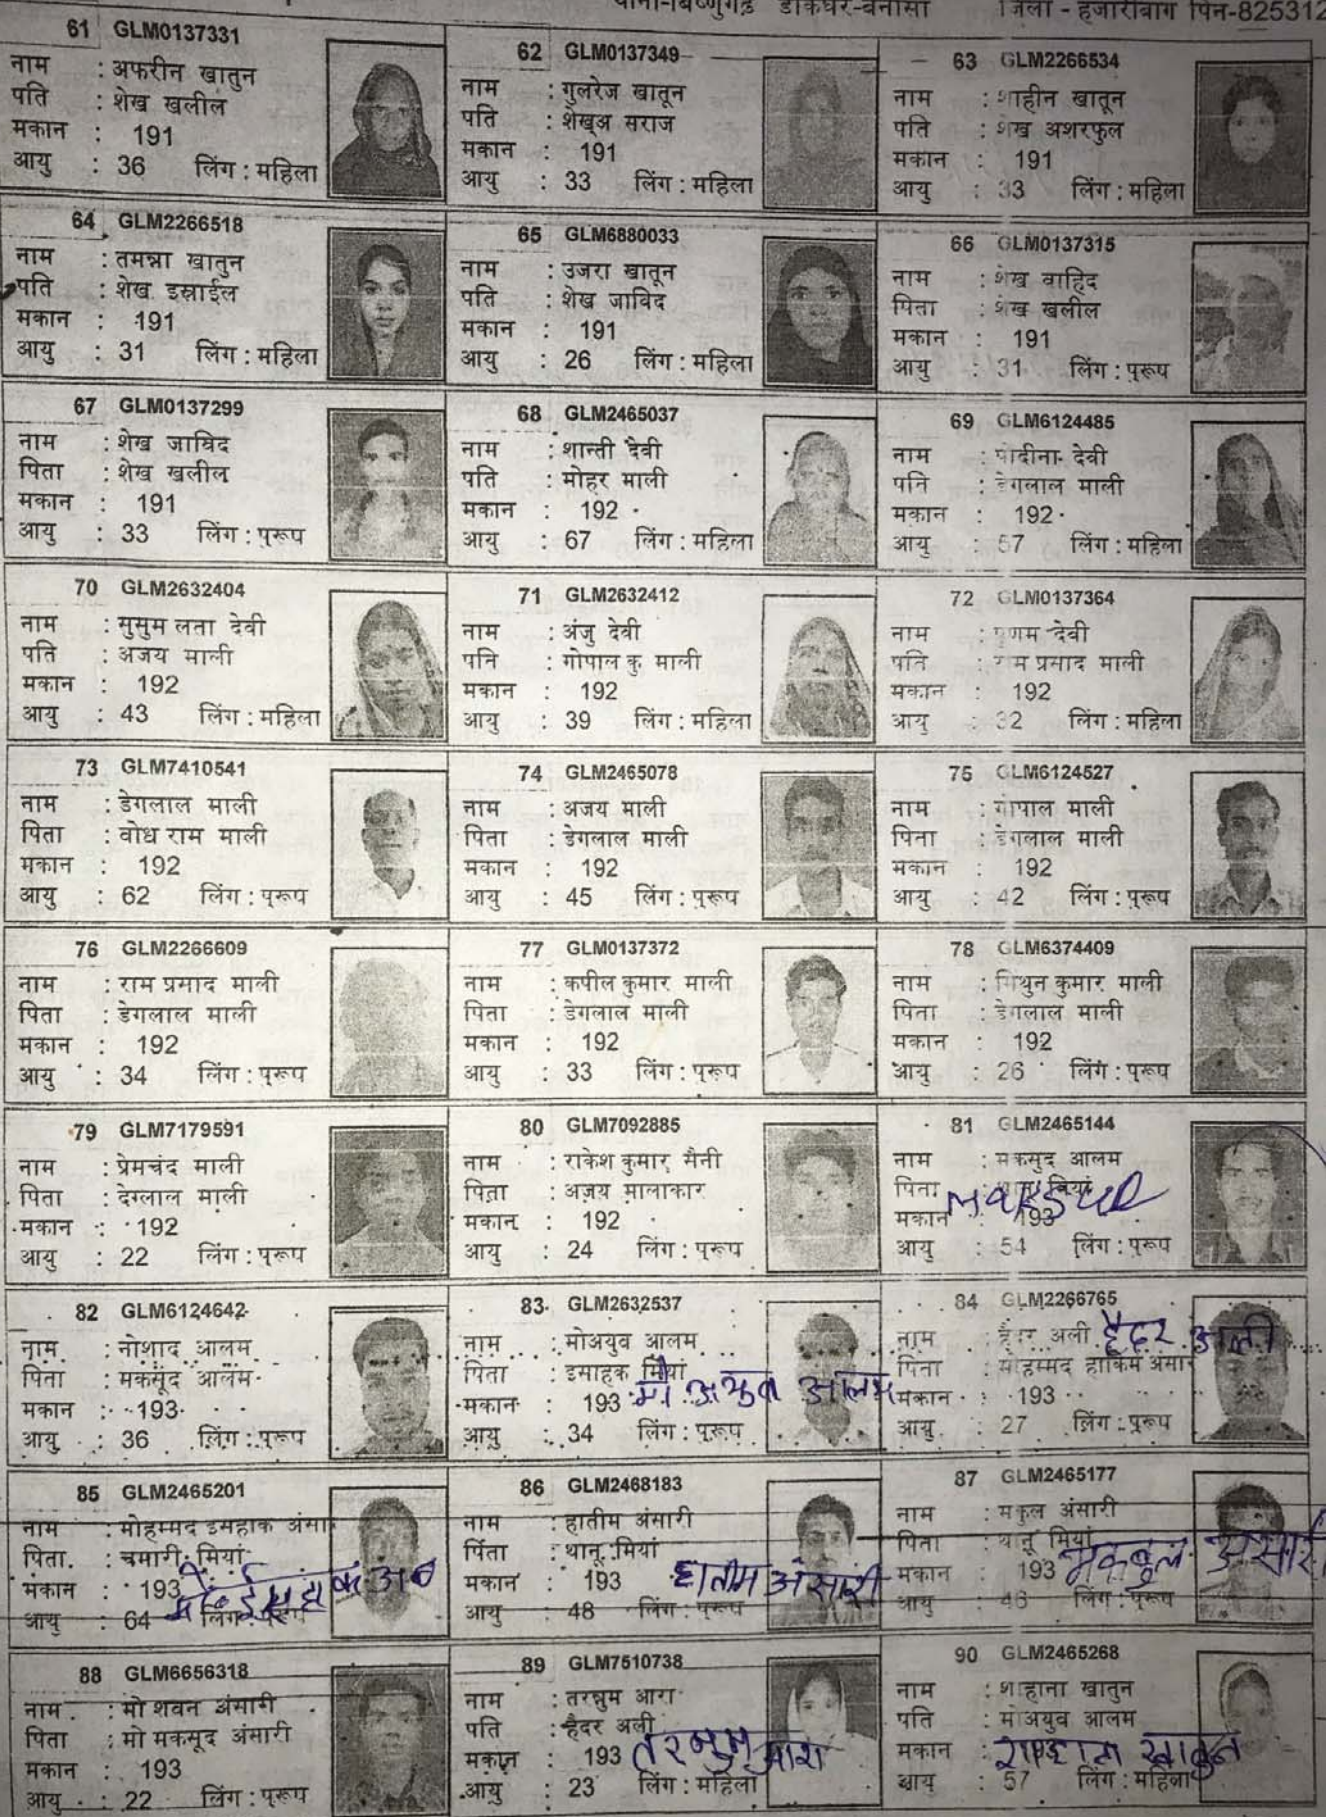 थाना-बिष्णुगढ़ डाकघर-बनासो जिला - हजारीबाग पिन-825312
61 GLM0137331
नाम : अफरीन खातुन
पति : शेख खलील
मकान : 191
आयु : 36 लिंग : महिला
62 GLM0137349
नाम : गुलरेज खातून
पति : शेख्अ सराज
मकान : 191
आयु : 33 लिंग : महिला
63 GLM2266534
नाम : शाहीन खातून
पति : शेख अशरफुल
मकान : 191
आयु : 33 लिंग : महिला
64 GLM2266518
नाम : तमन्ना खातुन
पति : शेख इस्राईल
मकान : 191
आयु : 31 लिंग : महिला
65 GLM6880033
नाम : उजरा खातून
पति : शेख जाविद
मकान : 191
आयु : 26 लिंग : महिला
66 GLM0137315
नाम : शेख वाहिद
पिता : शेख खलील
मकान : 191
आयु : 31 लिंग : पुरूष
67 GLM0137299
नाम : शेख जाविद
पिता : शेख खलील
मकान : 191
आयु : 33 लिंग : पुरूष
68 GLM2465037
नाम : शान्ती देवी
पति : मोहर माली
मकान : 192
आयु : 67 लिंग : महिला
69 GLM6124485
नाम : पोदीना देवी
पति : डेगलाल माली
मकान : 192
आयु : 57 लिंग : महिला
70 GLM2632404
नाम : सुसुम लता देवी
पति : अजय माली
मकान : 192
आयु : 43 लिंग : महिला
71 GLM2632412
नाम : अंजु देवी
पति : गोपाल कु माली
मकान : 192
आयु : 39 लिंग : महिला
72 GLM0137364
नाम : पुणम देवी
पति : राम प्रसाद माली
मकान : 192
आयु : 32 लिंग : महिला
73 GLM7410541
नाम : डेगलाल माली
पिता : वोध राम माली
मकान : 192
आयु : 62 लिंग : पुरूष
74 GLM2465078
नाम : अजय माली
पिता : डेगलाल माली
मकान : 192
आयु : 45 लिंग : पुरूष
75 GLM6124527
नाम : गोपाल माली
पिता : डेगलाल माली
मकान : 192
आयु : 42 लिंग : पुरूष
76 GLM2266609
नाम : राम प्रसाद माली
पिता : डेगलाल माली
मकान : 192
आयु : 34 लिंग : पुरूष
77 GLM0137372
नाम : कपील कुमार माली
पिता : डेगलाल माली
मकान : 192
आयु : 33 लिंग : पुरूष
78 GLM6374409
नाम : मिथुन कुमार माली
पिता : डेगलाल माली
मकान : 192
आयु : 26 लिंग : पुरूष
79 GLM7179591
नाम : प्रेमचंद माली
पिता : देग्लाल माली
मकान : 192
आयु : 22 लिंग : पुरूष
80 GLM7092885
नाम : राकेश कुमार सैनी
पिता : अजय मालाकार
मकान : 192
आयु : 24 लिंग : पुरूष
81 GLM2465144
नाम : मकसुद आलम
पिता : मियां
मकान : 193
आयु : 54 लिंग : पुरूष
82 GLM6124642
नाम : नोशाद आलम
पिता : मकसूद आलम
मकान : 193
आयु : 36 लिंग : पुरूष
83 GLM2632537
नाम : मोअयुव आलम
पिता : इसाहक मियां
मकान : 193 मो अयुब आलम
आयु : 34 लिंग : पुरूष
84 GLM2266765
नाम : हैदर अली हैदर अली
पिता : मोहम्मद हाकिम अंसार
मकान : 193
आयु : 27 लिंग : पुरूष
85 GLM2465201
नाम : मोहम्मद इसहाक अंसा
पिता : चमारी मियां
मकान : 193
आयु : 64 लिंग : पुरूष
86 GLM2468183
नाम : हातीम अंसारी
पिता : थानू मियां
मकान : 193 हातीम अंसारी
आयु : 48 लिंग : पुरूष
87 GLM2465177
नाम : मकुल अंसारी
पिता : थानू मियां
मकान : 193 मकबुल अंसारी
आयु : 46 लिंग : पुरूष
88 GLM6656318
नाम : मो शवन अंसारी
पिता : मो मकसूद अंसारी
मकान : 193
आयु : 22 लिंग : पुरूष
89 GLM7510738
नाम : तरन्नुम आरा
पति : हैदर अली
मकान : 193 तरनुम आरा
आयु : 23 लिंग : महिला
90 GLM2465268
नाम : शाहाना खातुन
पति : मोअयुव आलम
मकान : खातुन
आयु : 57 लिंग : महिला